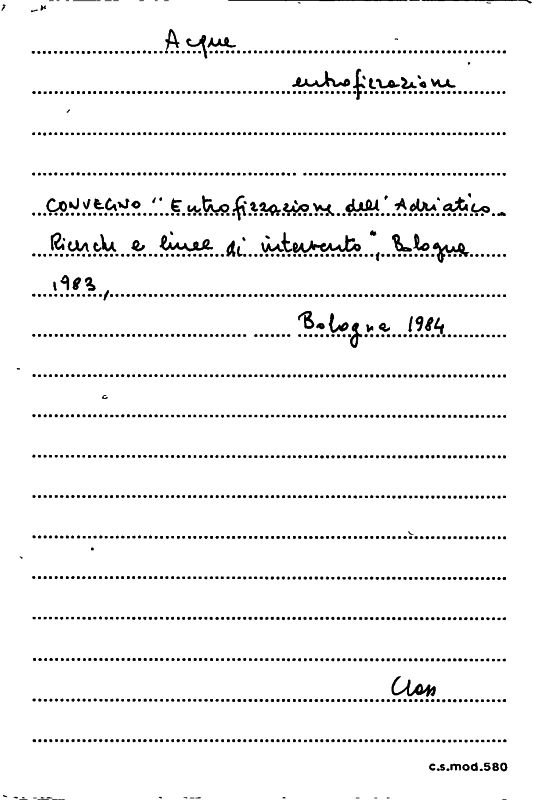 Acque
eutrofizzazione
CONVEGNO "Eutrofizzazione dell'Adriatico.
Ricerche e linee di intervento", Bologna
1983,
Bologna 1984
Class
c.s.mod.580